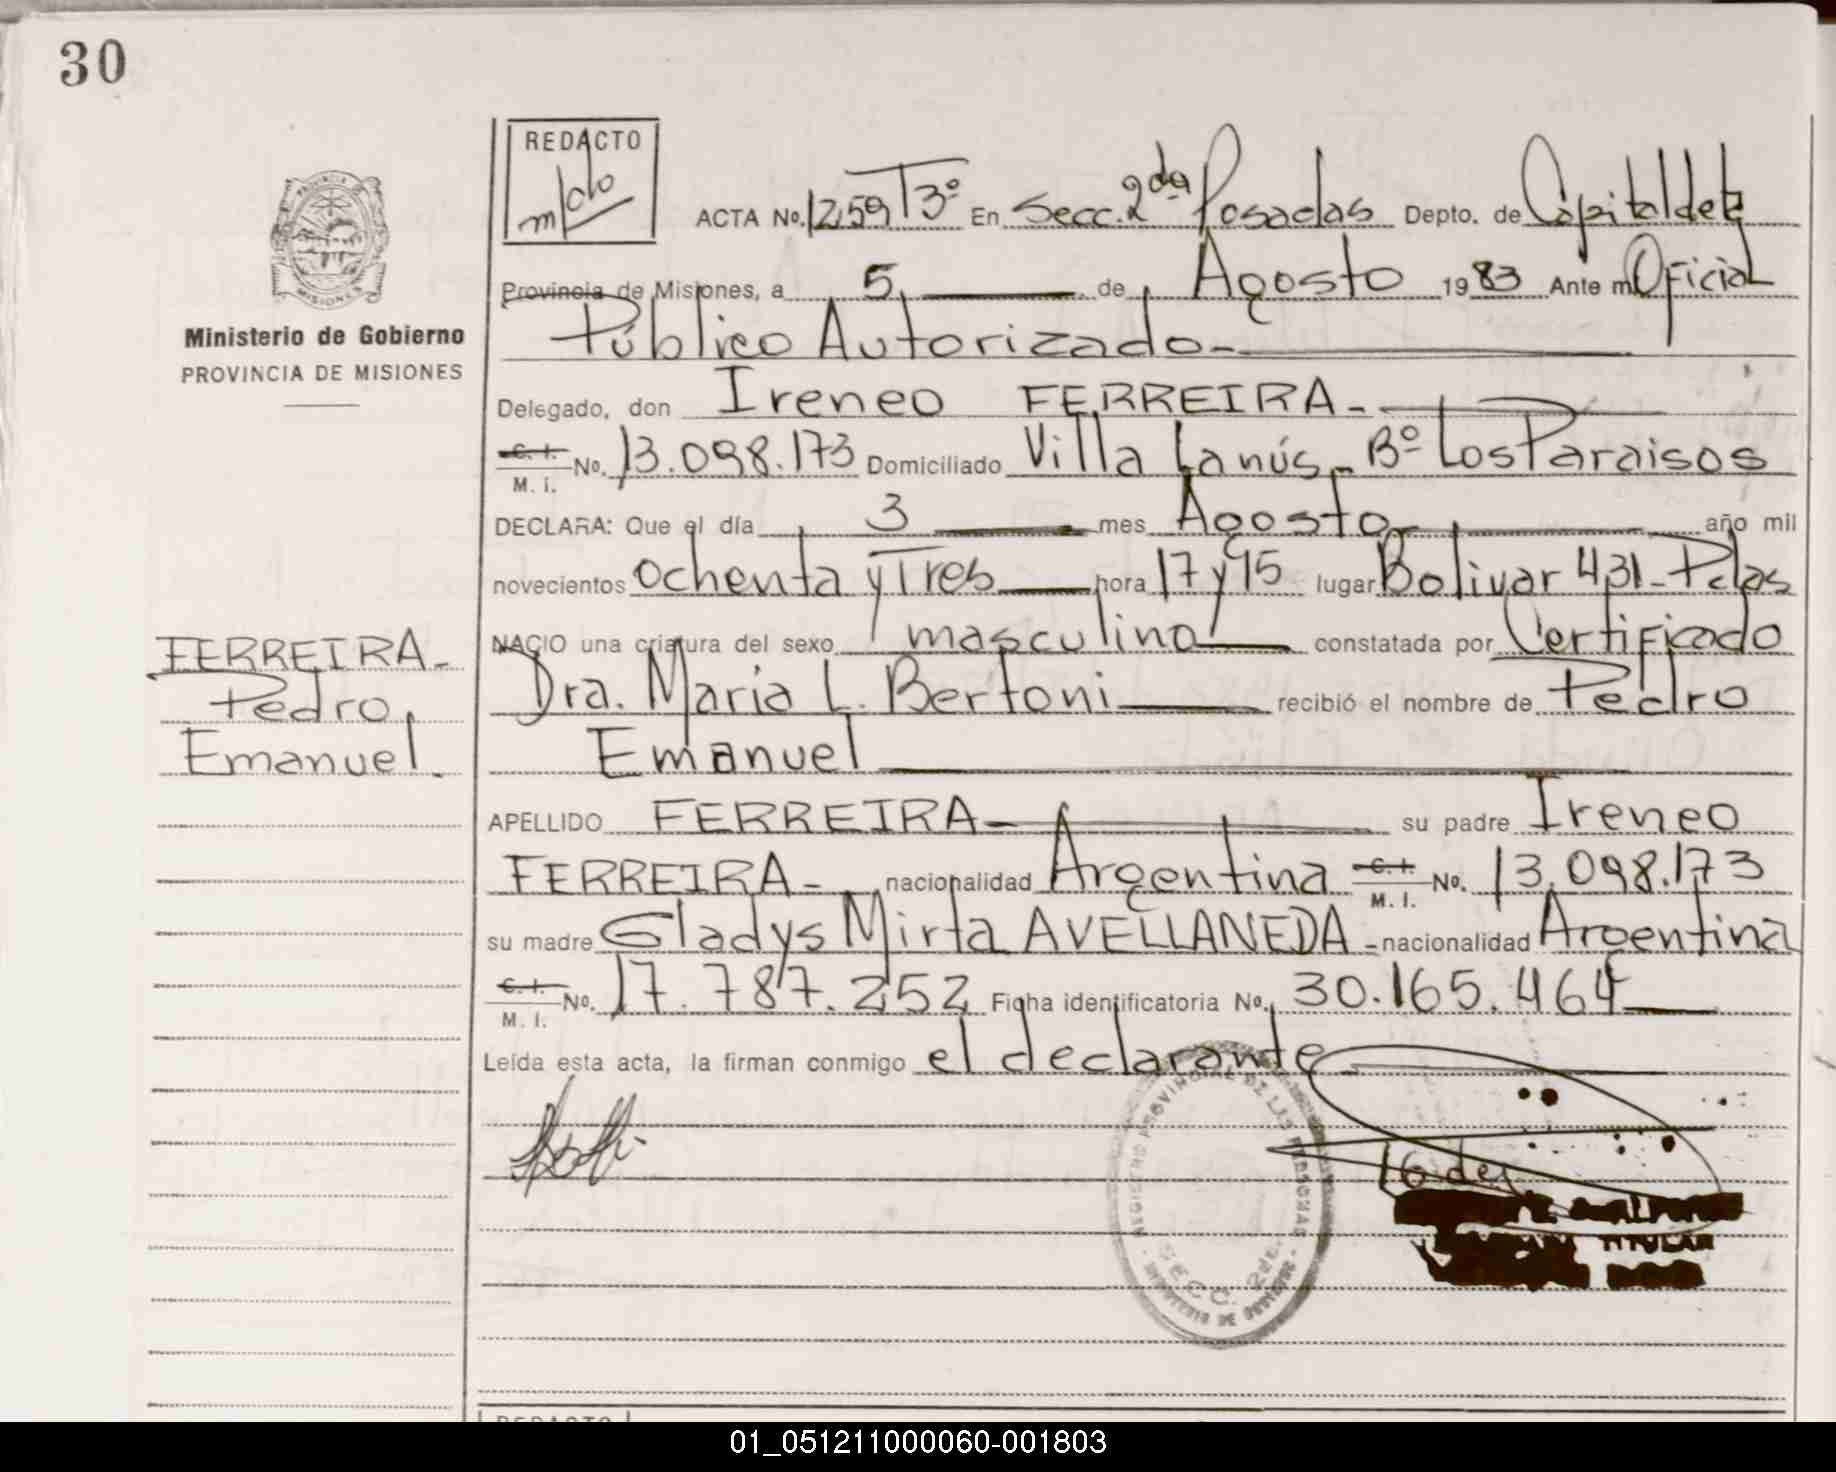 30
REDACTO
ACTA No. 1259 T3º En Secc. 2da Posadas Depto. de Capital de la
Provincia de Misiones, a 5 de Agosto 1983 Ante mi Oficial
Público Autorizado
Ministerio de Gobierno
PROVINCIA DE MISIONES
Delegado, don Ireneo FERREIRA
C. I. No. 13.098.173 Domiciliado Villa Lanús - Bº Los Paraisos
M. I.
DECLARA: Que el día 3 mes Agosto año mil
novecientos ochenta y Tres hora 17 y 15 lugar Bolivar 431 - Pdas
NACIO una criatura del sexo masculino constatada por Certificado
FERREIRA
Dra. Maria L. Bertoni recibió el nombre de Pedro
Pedro
Emanuel
Emanuel.
APELLIDO FERREIRA su padre Ireneo
FERREIRA nacionalidad Argentina C. I. No. 13.098.173
M. I.
su madre Gladys Mirta AVELLANEDA nacionalidad Argentina
C. I. No. 17.787.252 Ficha identificatoria No. 30.165.464
M. I.
Leída esta acta, la firman conmigo el declarante
REGISTRO PROVINCIAL DE LAS PERSONAS
SECC. 2da.
MINISTERIO DE GOBIERNO
TITULAR
REDACTO
01_051211000060-001803